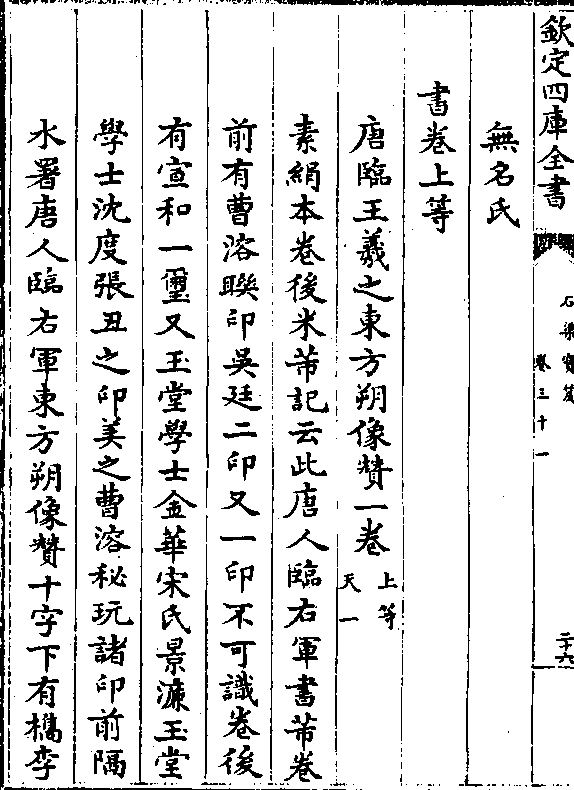 欽定四庫全書
石渠寶笈
卷三十一
二十六
無名氏
書卷上等
唐臨王羲之東方朔像贊一卷
上等
天一
素絹本卷後米芾記云此唐人臨右軍書芾卷
前有曹溶聨印吳廷二印又一印不可識卷後
有宣和一璽又玉堂學士金華宋氏景濂玉堂
學士沈度張丑之印美之曹溶秘玩諸印前隔
水署唐人臨右軍東方朔像贊十字下有檇李